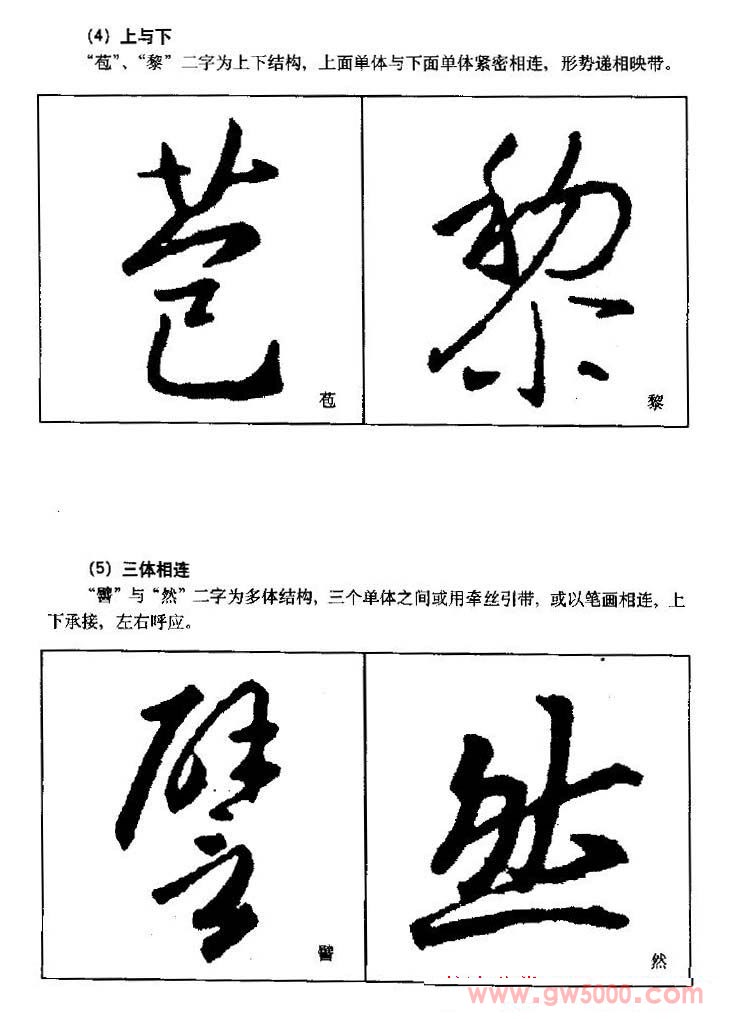 (4) 上与下
“苞”、“黎” 二字为上下结构，上面单体与下面单体紧密相连，形势递相映带。
苞 黎
苞 黎
(5) 三体相连
“譬” 与 “然” 二字为多体结构，三个单体之间或用牵丝引带，或以笔画相连，上
下承接，左右呼应。
譬 然
譬 然
www.gw5000.com